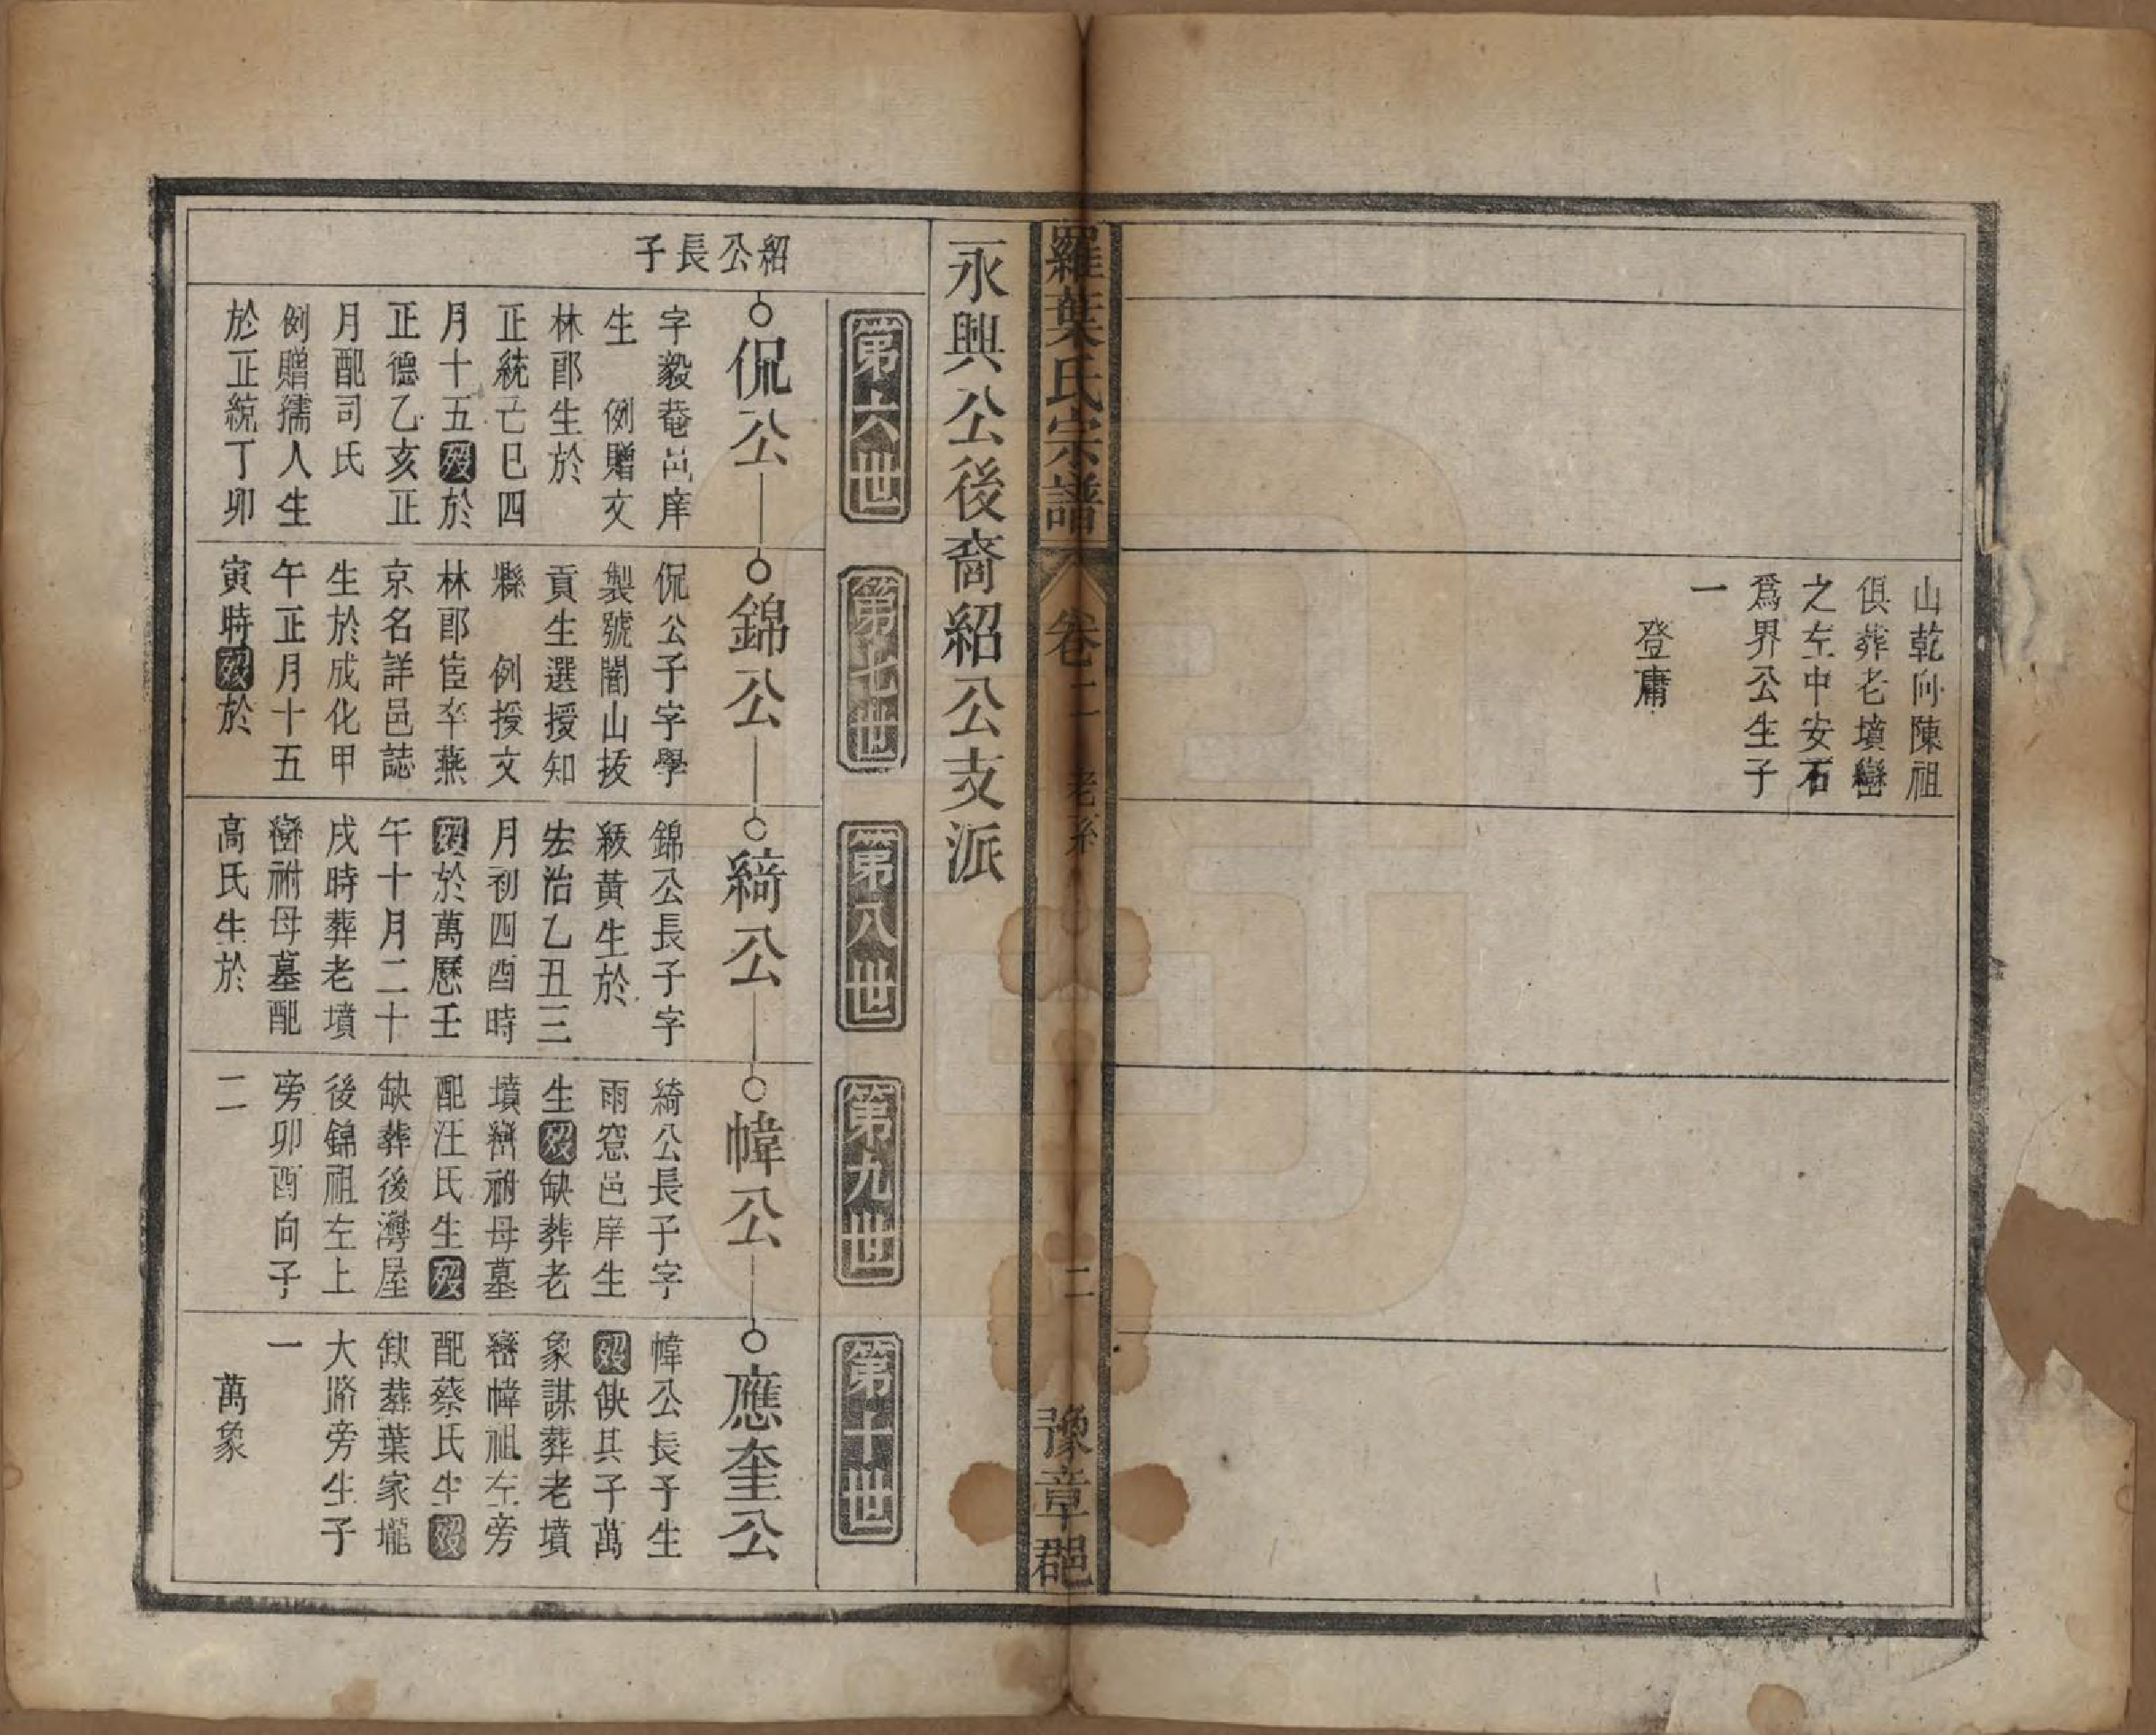 山乾向陳祖
俱葬老墳巒
之左中安石
爲界公生子
一
登庸
羅葉氏宗譜 卷二 老系 二 豫章郡
永興公後裔紹公支派
第六世
第七世
第八世
第九世
第十世
紹公長子
侃公
字毅菴邑庠
生 例贈文
林郎生於
正統己巳四
月十五歿於
正德乙亥正
月配司氏
例贈孺人生
於正統丁卯
錦公
侃公子字學
製號閬山拔
貢生選授知
縣 例授文
林郎宦卒燕
京名詳邑誌
生於成化甲
午正月十五
寅時歿於
綺公
錦公長子字
紱黃生於
宏治乙丑三
月初四酉時
歿於萬歷壬
午十月二十
戌時葬老墳
巒祔母墓配
高氏生於
幃公
綺公長子字
雨窓邑庠生
生歿缺葬老
墳巒祔母墓
配汪氏生歿
缺葬後灣屋
後錦祖左上
旁卯酉向子
二
應奎公
幃公長子生
歿缺其子萬
象謀葬老墳
巒幃祖左旁
配蔡氏生歿
缺葬葉家壠
大路旁生子
一
萬象